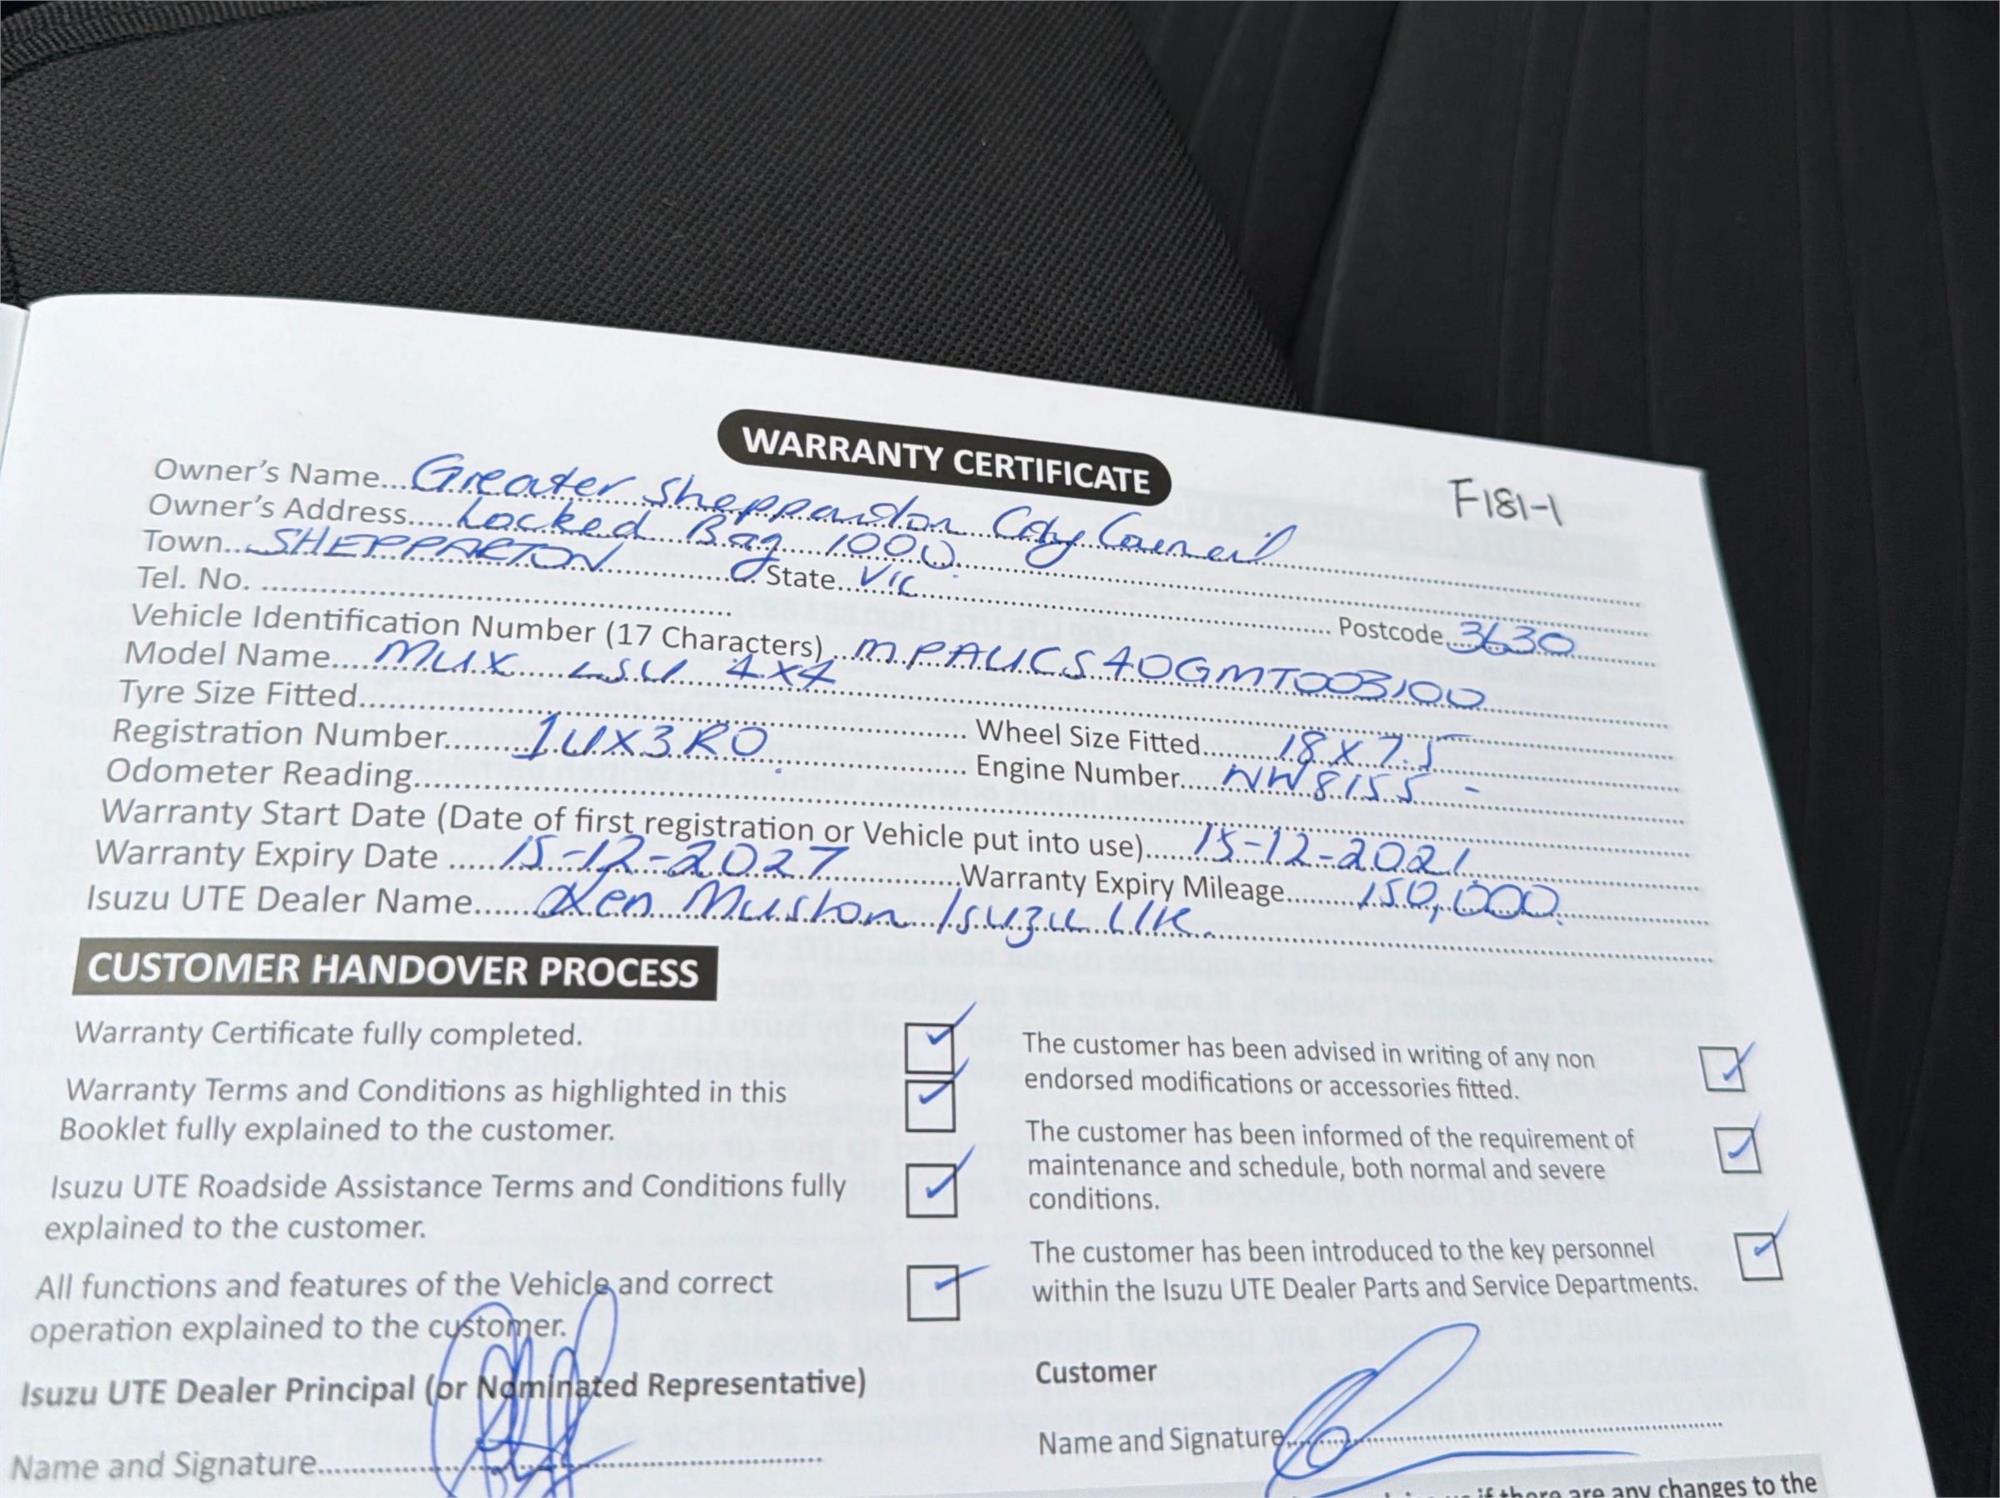 WARRANTY CERTIFICATE
F181-1
Owner's Name...Greater Shepparton City Council
Owner's Address....Locked Bag 1000.
Town...SHEPPARTON State...VIC Postcode 3630
Tel. No.
Vehicle Identification Number (17 Characters) MPAUCS40GMT003100
Model Name....MUX LSU 4X4
Tyre Size Fitted Wheel Size Fitted....18 X 7.5
Registration Number.......1UX3RO. Engine Number....WW8155 -
Odometer Reading
Warranty Start Date (Date of first registration or Vehicle put into use).....15-12-2021.
Warranty Expiry Date ....15-12-2027 Warranty Expiry Mileage.......150,000.
Isuzu UTE Dealer Name......Ken Muston Isuzu Ute.
CUSTOMER HANDOVER PROCESS
Warranty Certificate fully completed.
Warranty Terms and Conditions as highlighted in this
Booklet fully explained to the customer.
Isuzu UTE Roadside Assistance Terms and Conditions fully
explained to the customer.
All functions and features of the Vehicle and correct
operation explained to the customer.
Isuzu UTE Dealer Principal (or Nominated Representative)
Name and Signature
The customer has been advised in writing of any non
endorsed modifications or accessories fitted.
The customer has been informed of the requirement of
maintenance and schedule, both normal and severe
conditions.
The customer has been introduced to the key personnel
within the Isuzu UTE Dealer Parts and Service Departments.
Customer
Name and Signature
if there are any changes to the